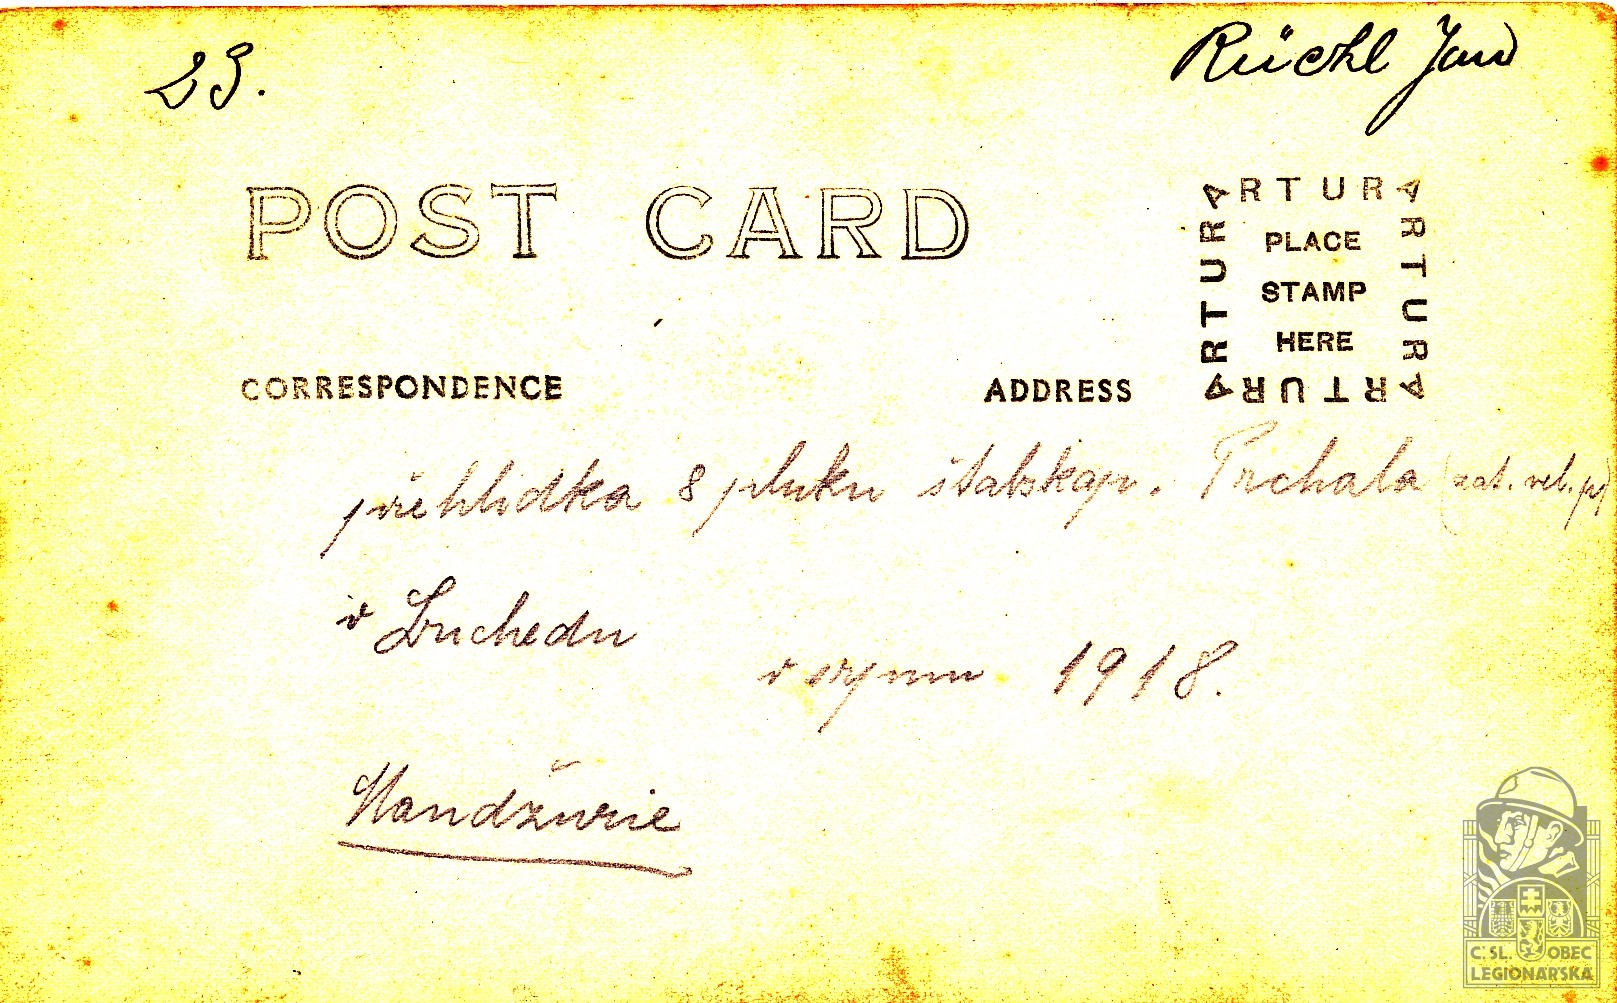 23.
Rückl Jan
POST CARD
ARTURA ARTURA ARTURA ARTURA
PLACE
STAMP
HERE
CORRESPONDENCE
ADDRESS
přehlidka 8 pluku štabskap. Trchala (zat. vel. pl)
v Duchedu
v srpnu 1918.
Mandžurie
Č SL. OBEC
LEGIONÁŘSKÁ